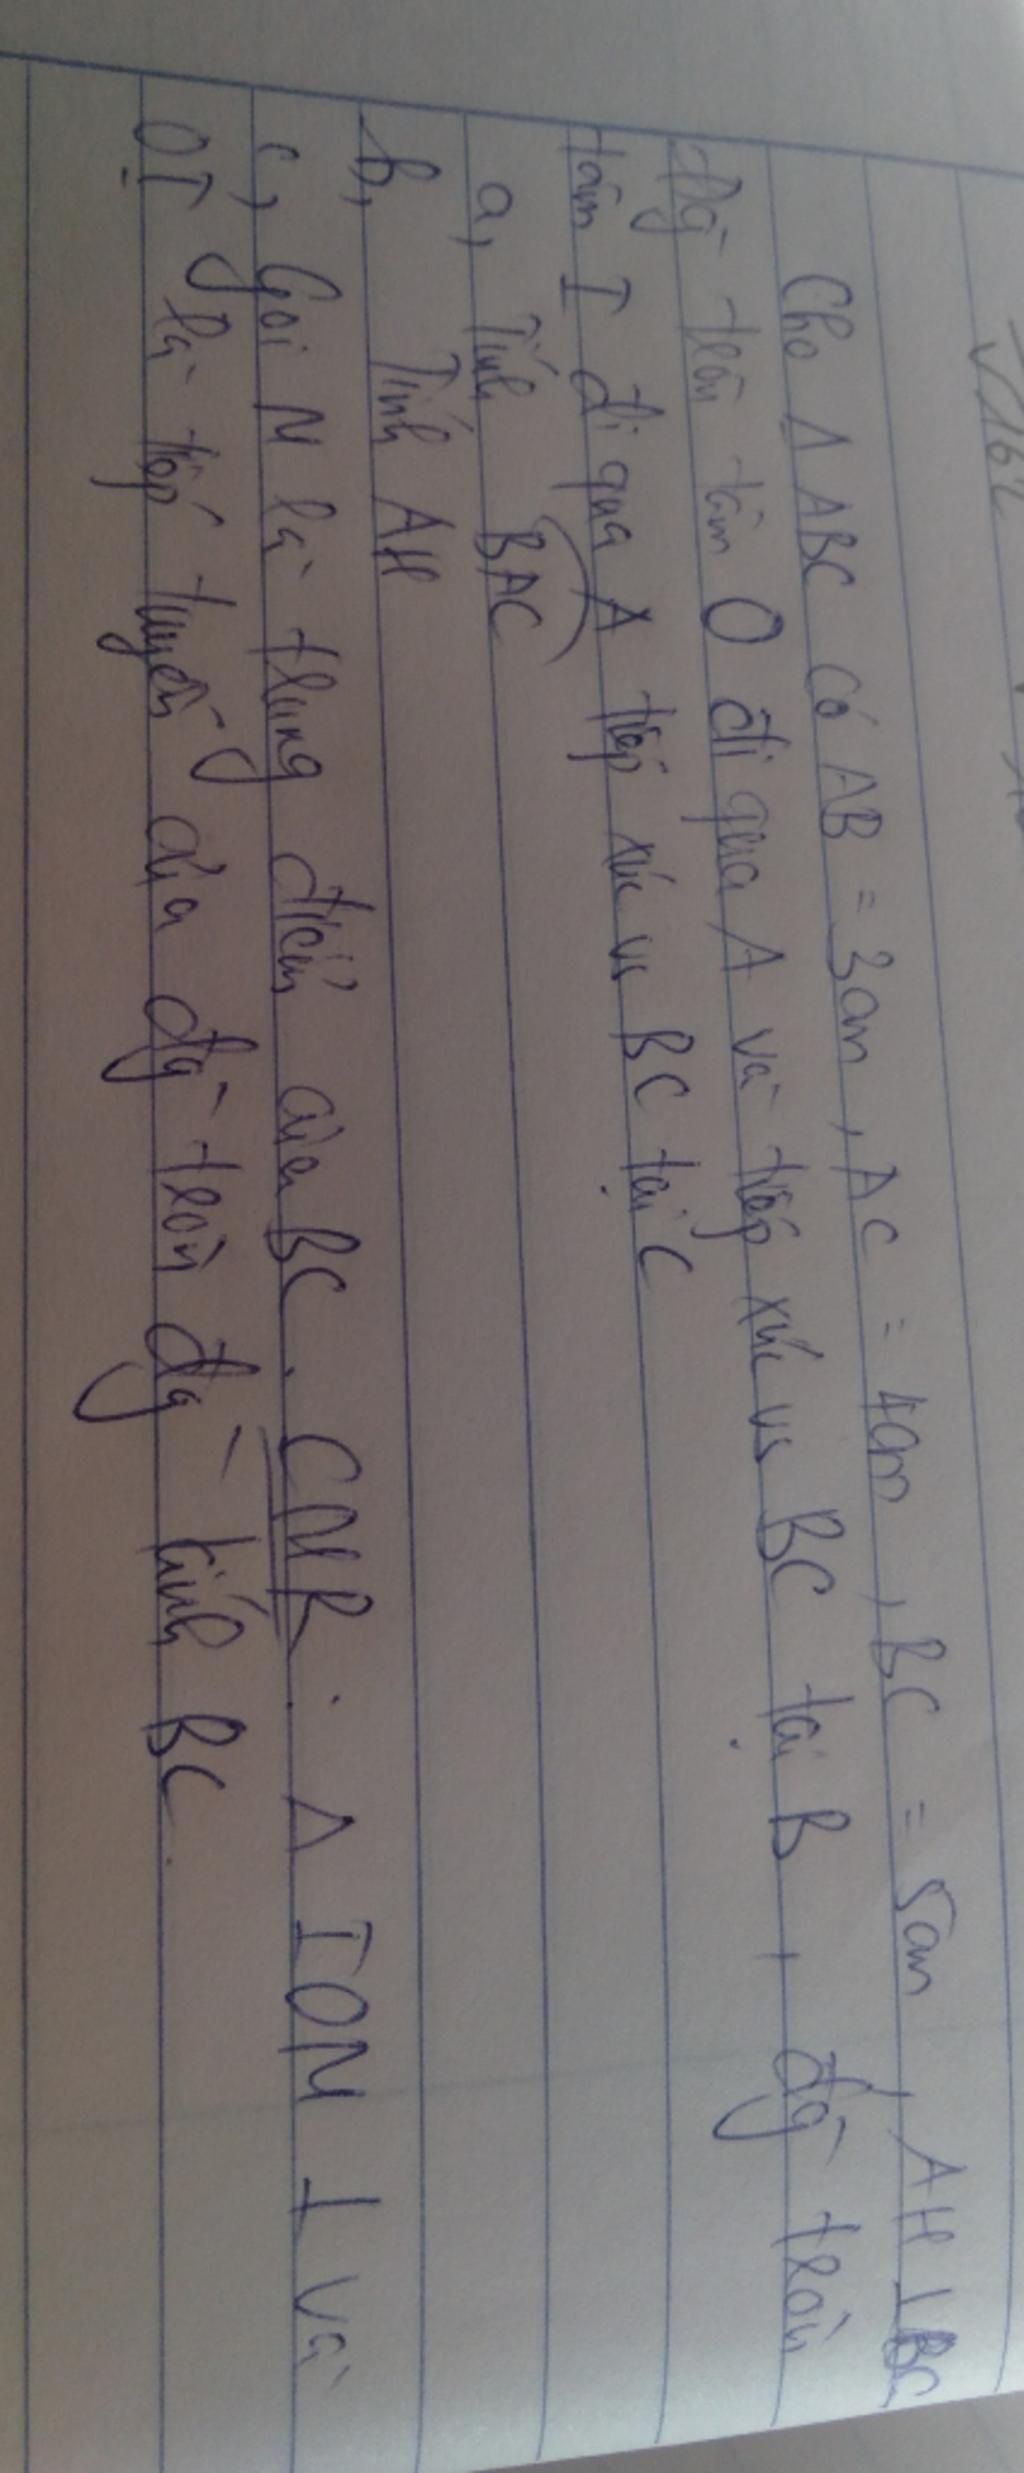 Cho Δ ABC có AB = 3cm, AC = 4cm, BC = 5cm, AH ⊥ BC
Đg` tròn tâm O đi qua A và tiếp xúc vs BC tại B, đg` tròn
tâm I đi qua A tiếp xúc vs BC tại C
a, Tính BAC
b, Tính AH
c, Gọi M là trung điểm của BC. CMR: Δ IOM ⊥ và
OI là tiếp tuyến của đg` tròn đg` kính BC.